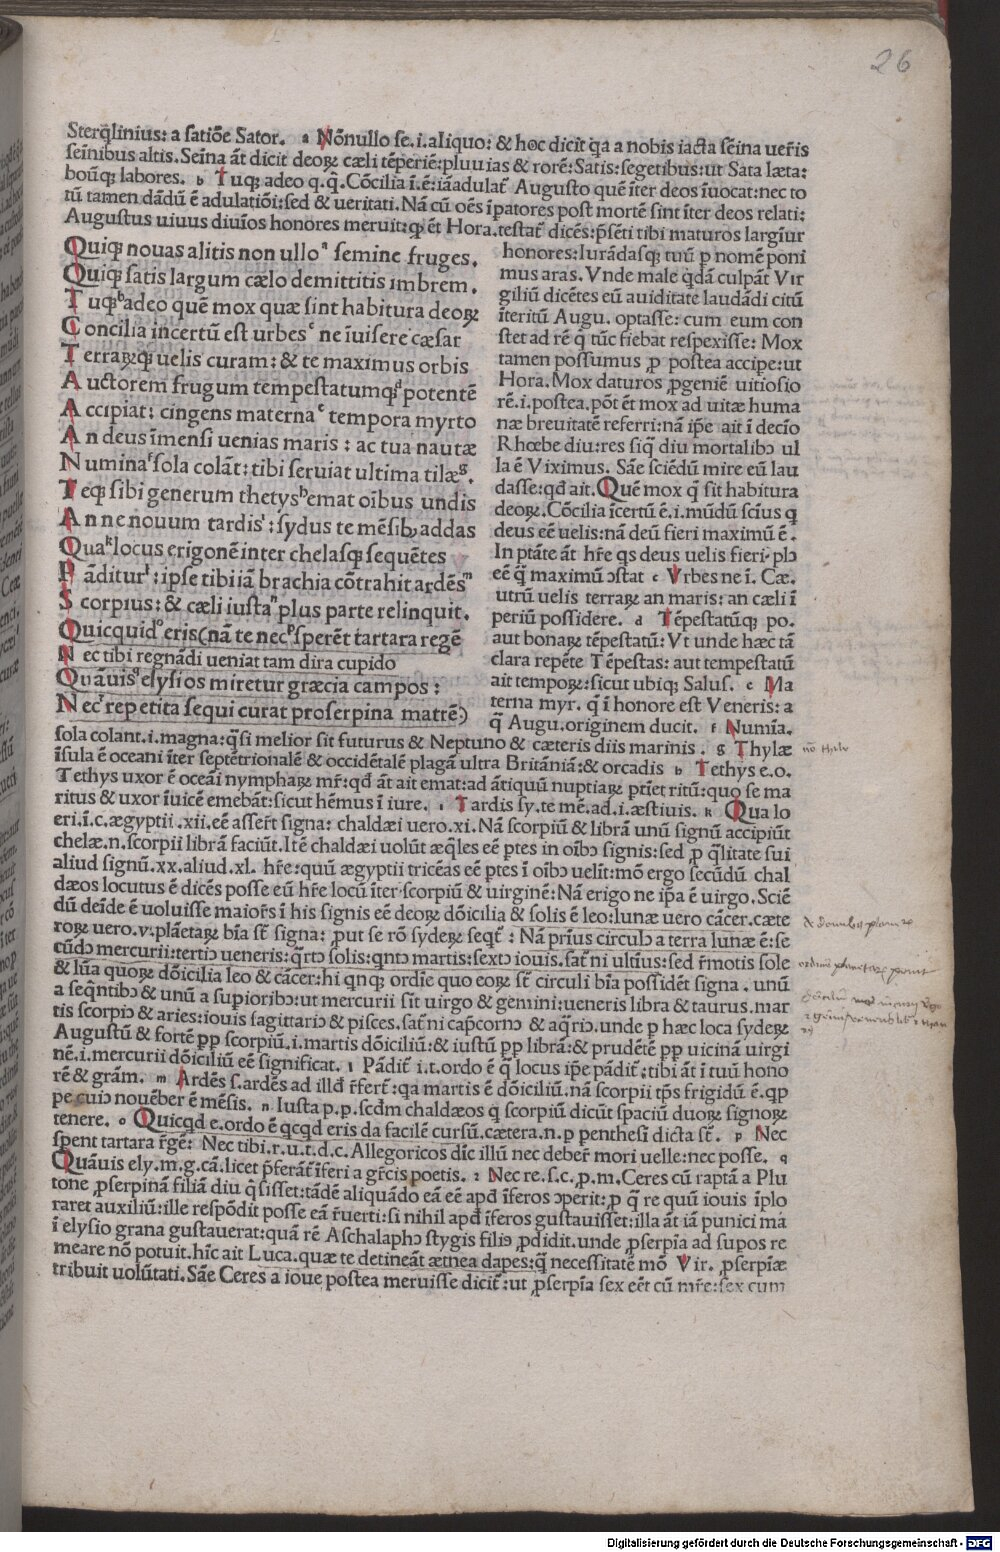 26
Sterq̃linius: a satiõe Sator. a Nõnullo se.i.aliquo: & hoc dicit q̃a a nobis iacta sẽina uer̃is
seĩnibus altis. Seĩna ãt dicit deoꝝ cæli tẽperiẽ: pluuias & rorẽ: Satis: segetibus: ut Sata læta:
boũqꝫ labores. b Tuqꝫ adeo q.q̃. Cõcilia ĩ.ẽ: iã adulat̃ Augusto quẽ ĩter deos ĩuocat: nec to
tũ tamen dãdũ ẽ adulatiõi: sed & ueritati. Nã cũ oẽs ĩpatores post mortẽ sint ĩter deos relati:
Augustus uiuus diuĩos honores meruit: qꝫ ẽt Hora. testat̃ dicẽs: p̃sẽti tibi maturos largiĩur
Quiqꝫ nouas alitis non ullo a semine fruges.
Quiqꝫ satis largum cælo demittitis imbrem.
Tuqꝫ b adeo quẽ mox quæ sint habitura deoꝝ
Concilia incertũ est urbes c ne ĩuisere cæsar
Terraꝝqꝫ uelis curam: & te maximus orbis
Auctorem frugum tempestatumqꝫ d potentẽ
Accipiat: cingens materna e tempora myrto
An deus ĩmensi uenias maris: ac tua nautæ
Numina f sola colãt: tibi seruiat ultima tilæ g.
Teqꝫ sibi generum thetys h emat oĩbus undis
Anne nouum tardis i: sydus te mẽsibꝰ addas
Qua k locus erigonẽ inter chelasqꝫ sequẽtes
Pãditur l: ipse tibi iã brachia cõtrahit ardẽs m
Scorpius: & cæli iusta n plus parte relinquit.
Quicquid o eris (nã te nec p sperẽt tartara regẽ
Nec tibi regnãdi ueniat tam dira cupido
Quãuis q elysios miretur græcia campos:
Nec r repetita sequi curat proserpina matrẽ)
honores: Iurãdasqꝫ tuũ p nomẽ poni
mus aras. Vnde male q̃dã culpãt Vir
giliũ dicẽtes eũ auiditate laudãdi citũ
ĩteritũ Augu. optasse: cum eum con
stet ad rẽ q̃ tũc fiebat respexisse: Mox
tamen possumus p̱ postea accipe: ut
Hora. Mox daturos p̱geniẽ uitiosio
rẽ.i.postea. põt ẽt mox ad uitæ huma
næ breuitatẽ referri: nã ip̃e ait ĩ decĩo
Rhœbe diu: res siq̃ diu mortalibꝰ ul
la ẽ Viximus. Sãe sciẽdũ mire eũ lau
dasse: qđ ait. Quẽ mox q̃ sit habitura
deoꝝ. Cõcilia ĩcertũ ẽ.i.mũdũ scĩus q
deus eẽ uelis: nã deũ fieri maximũ ẽ.
In ptãte ãt hr̃e qs deus uelis fieri. plꝰ
eẽ q̃ maximũ ꝯstat c Vrbes ne ĩ. Cæ.
utrũ uelis terraꝝ an maris: an cæli ĩ
periũ possidere. d Tẽpestatũqꝫ po.
aut bonaꝝ tẽpestatũ: Vt unde hæc tã
clara repẽte Tẽpestas: aut tempestatũ
ait tempoꝝ: sicut ubiqꝫ Salus. e Ma
terna myr. q̃ ĩ honore est Veneris: a
q̃ Augu. originem ducit. f Numĩa.
sola colant.i.magna: q̃si melior sit futurus & Neptuno & cæteris diis marinis. g Thylæ
ĩsula ẽ oceani ĩter septẽtrionalẽ & occidẽtalẽ plagã ultra Britãniã: & orcadis h Tethys e.o.
Tethys uxor ẽ oceãi nymphaꝝ mr̃: qđ ãt ait emat: ad ãtiquũ nuptiaꝝ ptĩet ritũ: quo se ma
ritus & uxor ĩuicẽ emebãt: sicut hẽmus ĩ iure. i Tardis sy. te mẽ. ad.i.æstiuis. k Qua lo
eri.ĩ.c.ægyptii .xii. eẽ asser̃t signa: chaldæi uero .xi. Nã scorpiũ & librã unũ signũ accipiũt
chelæ.n.scorpii librã faciũt. Itẽ chaldæi uolũt æq̃les eẽ ptes in oĩbꝰ signis: sed p̱ q̃litate sui
aliud signũ .xx. aliud .xl. hr̃e: quũ ægyptii tricẽas eẽ ptes ĩ oĩbꝰ uelit: mõ ergo secũdũ chal
dæos locutus ẽ dicẽs posse eũ hr̃e locũ ĩter scorpiũ & uirginẽ: Nã erigo ne ip̃a ẽ uirgo. Sciẽ
dũ deĩde ẽ uoluisse maior̃s ĩ his signis eẽ deoꝝ dõicilia & solis ẽ leo: lunæ uero cãcer. cæte
roꝝ uero .v. plãetaꝝ bĩa sť signa: put se rõ sydeꝝ seqť: Nã prĩus circulꝰ a terra lunæ ẽ: se
cũdꝰ mercurii: tertiꝰ ueneris: q̃rtꝰ solis: qntꝰ martis: sextꝰ iouis. sať ni ultĩus: sed r̃motis sole
& lũa quoꝝ dõicilia leo & cãcer: hi qnqꝫ ordĩe quo eoꝝ sť circuli bĩa possidẽt signa. unũ
a seq̃ntibꝰ & unũ a supioribꝰ: ut mercurii sit uirgo & gemini: ueneris libra & taurus. mar
tis scorpiꝰ & aries: iouis sagittariꝰ & pisces. sať ni cap̃cornꝰ & aq̃riꝰ. unde p hæc loca sydeꝝ
Augustũ & fortẽ pp scorpiũ.i.martis dõiciliũ: & iustũ pp librã: & prudẽtẽ pp uicinã uirgi
nẽ.i.mercurii dõiciliũ eẽ significat. l Pãdit̃ i.t.ordo ẽ q̃ locus ip̃e pãdit̃: tibi ãt ĩ tuũ hono
rẽ & grãm. m Ardẽs s.ardẽs ad illđ r̃fert̃: qa martis ẽ dõiciliũ. nã scorpii tp̃s frigidũ ẽ. qp
pe cuiꝰ nouẽber ẽ mẽsis. n Iusta p.p. scdm chaldæos q̃ scorpiũ dicũt spaciũ duoꝝ signoꝝ
tenere. o Quicqd e.ordo ẽ qcqd eris da facilẽ cursũ. cætera.n.p penthesĩ dicta sť. p Nec
spent tartara r̃gẽ: Nec tibi.r.u.t.d.c. Allegoricos dĩc illũ nec deber̃ mori uelle: nec posse. q
Quãuis ely.m.g.cã.licet p̃ferãt ĩferi a gr̃cis poetis. r Nec re.s.c.p̱.m. Ceres cũ raptã a Plu
tone p̱serpinã filiã diu q̃sisset: tãdẽ aliquãdo eã eẽ apđ ĩferos ꝯperit: p̱ q̃ re quũ iouis ĩplo
raret auxiliũ: ille respõdit posse eã r̃uerti: si nihil apđ ĩferos gustauisset: illa ãt iã punici mã
ĩ elysio grana gustauerat: quã rẽ Aschalaphꝰ stygis filiꝰ p̱didit. unde p̱serpĩa ad supos re
meare nõ potuit. hĩc ait Luca. quæ te detineãt ætnea dapes: q̃ necessitatẽ mõ Vir. p̱serpiæ
tribuit uolũtati. Sãe Ceres a ioue postea meruisse dicit̃: ut p̱serpĩa sex eẽt cũ mr̃e: sex cum
Digitalisierung gefördert durch die Deutsche Forschungsgemeinschaft - DFG